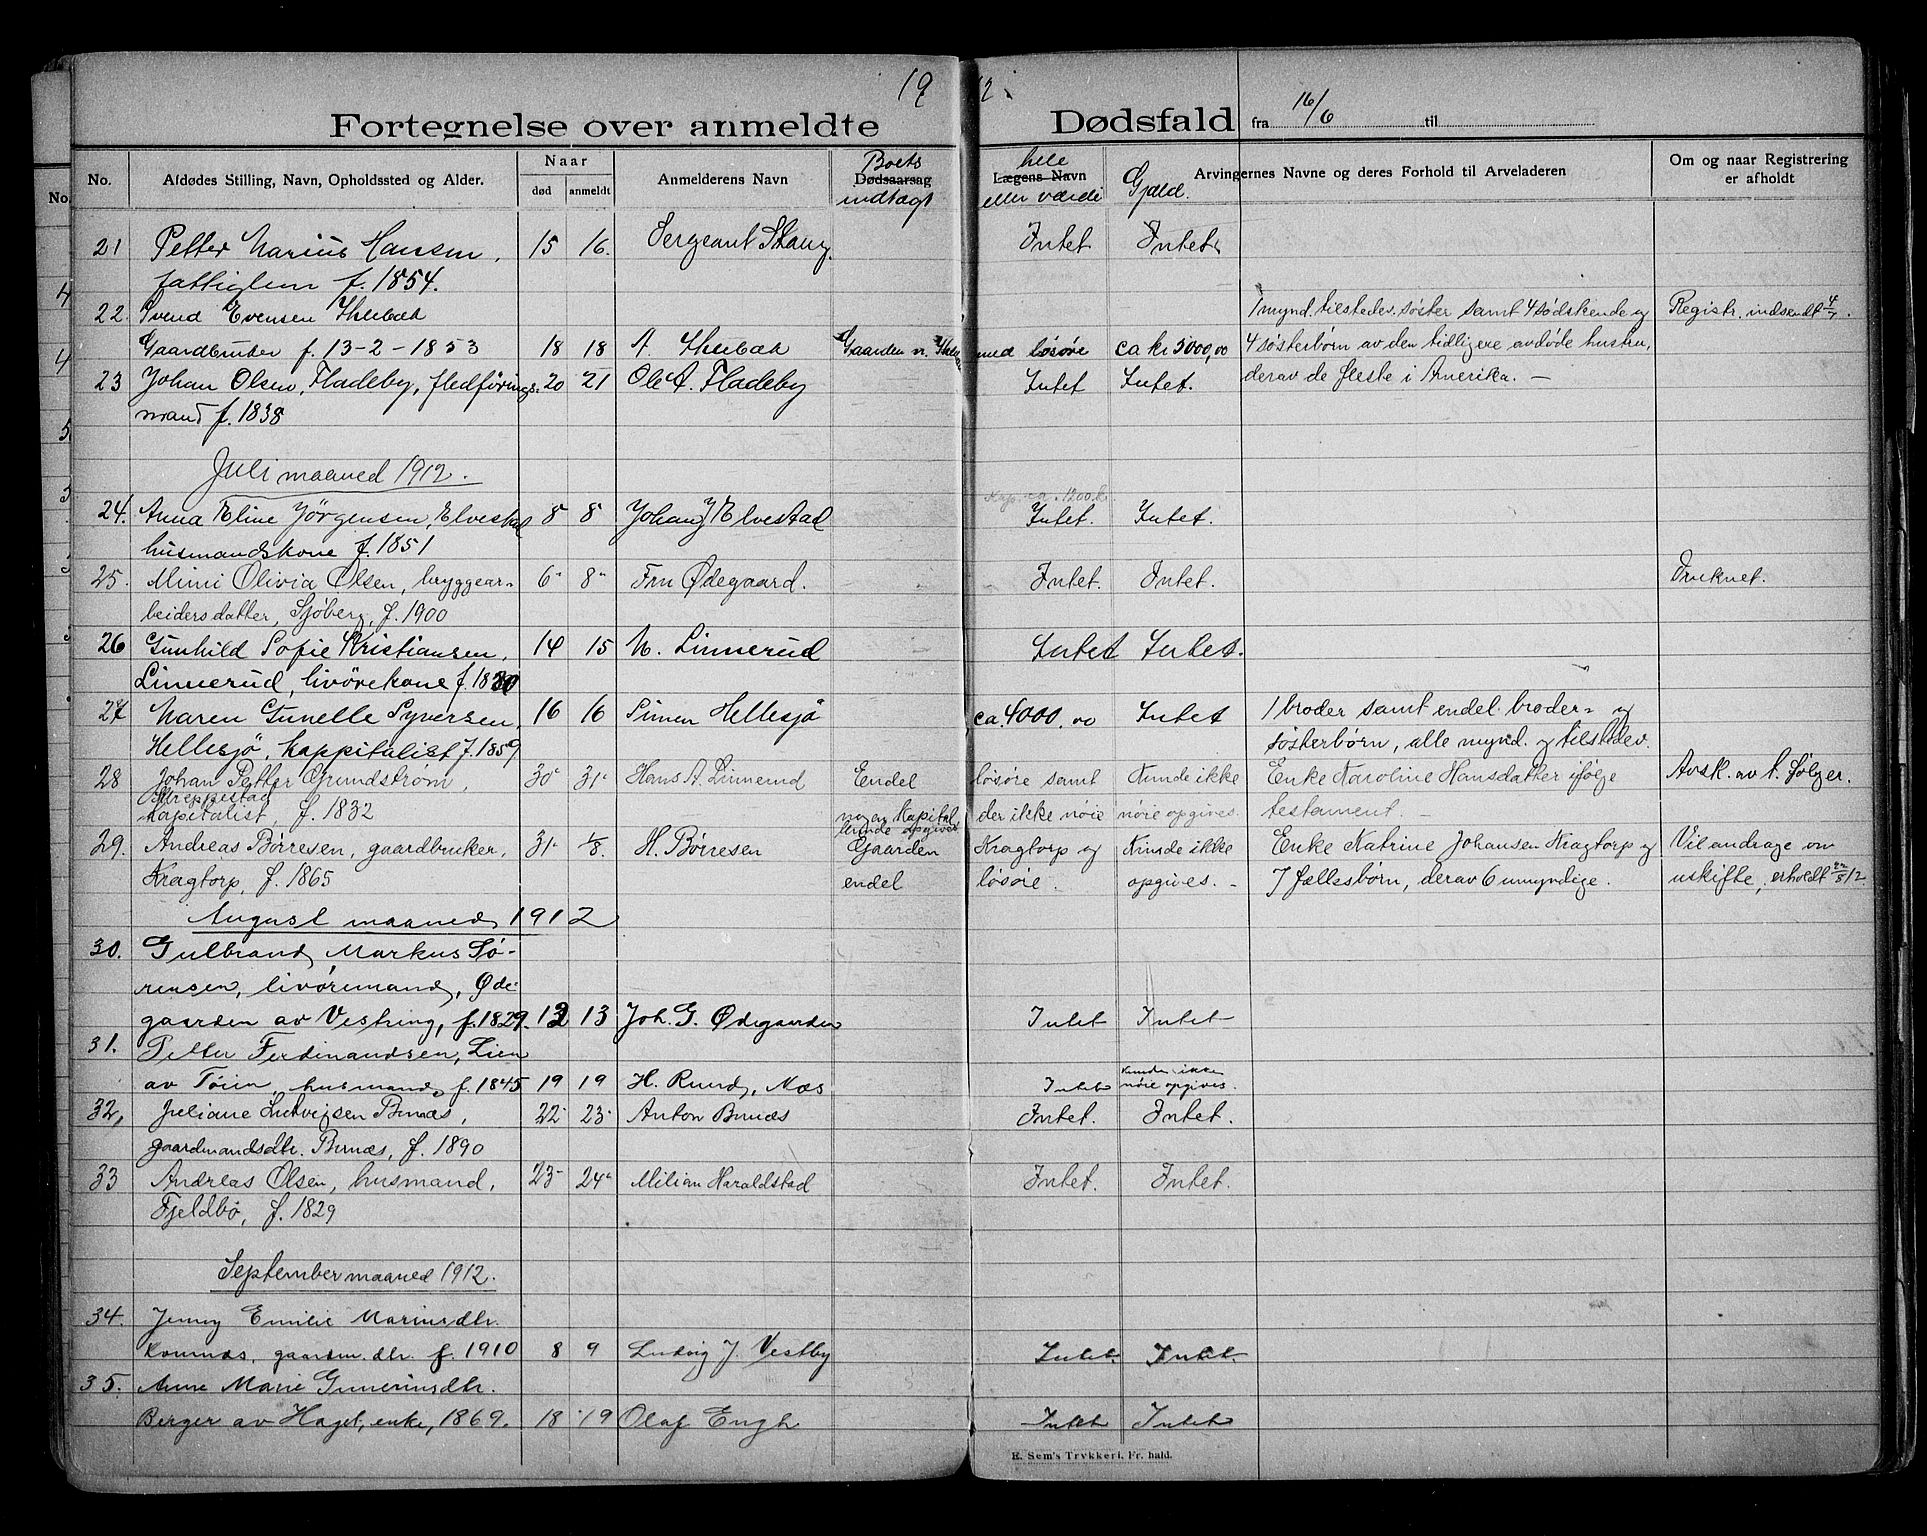 1912.
Fortegnelse over anmeldte Dødsfald fra 16/6 til
No. Afdødes Stilling, Navn, Opholdssted og Alder. Naar død anmeldt Anmelderens Navn Dødsaarsag Boets indtægt Lægens Navn hele eller værdi Gjæld. Arvingernes Navne og deres Forhold til Arveladeren Om og naar Registrering er afholdt
21 Petter Marius Hansen, 15 16. Sergeant Skaug. Intet Intet
fattiglem f. 1854.
22. Svend Evensen 1 mynd. tilstedev. søster samt 4 sødskende og Registr. indsendt 4/7.
Gaardbruder f. 13-2-1853 18 18 A. Gaarden n. med løsøre ca kr 3000,00 4 søsterbørn av den tidligere avdøde hustru,
23 Johan Olsen, Fladeby, flødførings- 20 21 Ole A. Fladeby Intet Intet. derav de fleste i Amerika. —
mand f. 1838
Juli maaned 1912.
ca. 1200 k
24. Anna Eline Jørgensen, Elvestad 8 8 Johan J Elvestad Intet. Intet.
husmandskone f. 1851
25. Mimi Olivia Olsen, bryggear- 6 8 Fru Ødegaard. Intet. Intet. Druknet.
beidersdatter, Sjøberg, f. 1900
26 Gunhild Sofie Kristiansen, 14 15 M. Linnerud Intet Intet.
Linnerud, livørekone f. 1830
27 Maren Gunelle Syversen, 16 16 Simen Hellesjø ca. 4000,00 Intet 1 broder samt endel broder- og
Hellesjø, kappitalist f. 1859 søsterbørn, alle mynd. og tilstedev.
28 Johan Petter Grundstrøm, 30 31 Hans A. Linnerud Endel løsøre samt Kunde ikke Enke Karoline Hansdatter ifølge Avsk. av t. følger.
Streppestad
kapitalist, f. 1832 noget Kapital kunde opgives der ikke nøie nøie opgives. testament. —
29. Andreas Børresen, gaardbruker, 31 1/8. H. Børresen Gaarden Kragtorp og Kunde ikke Enke Katrine Johansen Kragtorp og Vil andrage om
Kragtorp, f. 1865 endel løsøre. opgives. — 7 fællesbørn, derav 6 umyndige. uskifte, erholdt 22/8 12
August maaned 1912
30. Gulbrand Markus Sø-
rensen, livøremand, Øde-
gaarden av Vestring, f. 1829. 12 13 Joh. G. Ødegaarden Intet Intet
31. Petter Ferdinandsen, Lien
av Tøien, husmand, f. 1845 19 19 H. Rund, Næs Intet Kunde ikke nøie opgives.
32, Juliane Ludvigsen Bunæs, 22 23 Anton Bunæs Intet. Intet.
gaardmandsdtr. Bunæs, f. 1890
33 Andreas Olsen, husmand, 23 24 Milian Haraldstad Intet. Intet.
Fjeldbø, f. 1829
September maaned 1912.
34. Jenny Emilie Mariusdtr.
Komnæs, gaardm. dtr. f. 1910 8 9 Ludvig J. Vestby Intet. Intet.
35. Anne Marie Gunneriusdtr.
Berger av Haget, enke, 1869. 18 19 Olaf Engh Intet Intet
E. Sem's Trykkeri, Fr. hald.